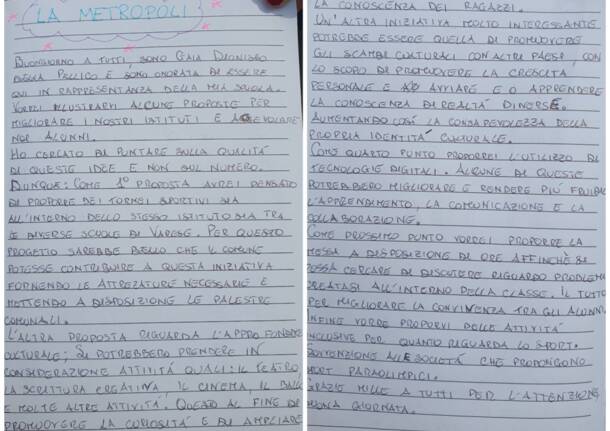 LA METROPOLI
BUONGIORNO A TUTTI, SONO GAIA DIONISIO
DELLA PELLICO E SONO ONORATA DI ESSERE
QUI IN RAPPRESENTANZA DELLA MIA SCUOLA.
VORREI ILLUSTRARVI ALCUNE PROPOSTE PER
MIGLIORARE I NOSTRI ISTITUTI E AGEVOLARE
NOI ALUNNI.
HO CERCATO DI PUNTARE SULLA QUALITÀ
DI QUESTE IDEE E NON SUL NUMERO.
DUNQUE: COME 1° PROPOSTA AVREI PENSATO
DI PROPORRE DEI TORNEI SPORTIVI SIA
ALL'INTERNO DELLO STESSO ISTITUTO SIA TRA
LE DIVERSE SCUOLE DI VARESE. PER QUESTO
PROGETTO SAREBBE BELLO CHE IL COMUNE
POTESSE CONTRIBUIRE A QUESTA INIZIATIVA
FORNENDO LE ATTREZATURE NECESSARIE E
METTENDO A DISPOSIZIONE LE PALESTRE
COMUNALI.
L'ALTRA PROPOSTA RIGUARDA L'APPROFONDIRE
CULTURALE; SI POTREBBERO PRENDERE IN
CONSIDERAZIONE ATTIVITÀ QUALI: IL TEATRO,
LA SCRITTURA CREATIVA IL CINEMA, IL BALLO
E MOLTE ALTRE ATTIVITÀ. QUESTO AL FINE DI
PROMUOVERE LA CURIOSITÀ E DI AMPLIARE
LA CONOSCENZA DEI RAGAZZI.
UN'ALTRA INIZIATIVA MOLTO INTERESSANTE
POTREBBE ESSERE QUELLA DI PROMUOVERE
GLI SCAMBI CULTURALI CON ALTRI PAESI, CON
LO SCOPO DI PROMUOVERE LA CRESCITA
PERSONALE E AVVIARE E O APPRENDERE
LA CONOSCENZA DI REALTÀ DIVERSE.
AUMENTANDO COSÌ LA CONSAPEVOLEZZA DELLA
PROPRIA IDENTITÀ CULTURALE.
COME QUARTO PUNTO PROPORREI L'UTILIZZO DI
TECNOLOGIE DIGITALI. ALCUNE DI QUESTE
POTREBBERO MIGLIORARE E RENDERE PIÙ FRUIBILE
L'APPRENDIMENTO, LA COMUNICAZIONE E LA
COLLABORAZIONE.
COME PROSSIMO PUNTO VORREI PROPORRE LA
MESSA A DISPOSIZIONE DI ORE AFFINCHÈ SI
POSSA CERCARE DI DISCUTERE RIGUARDO PROBLEMI
CREATASI ALL'INTERNO DELLA CLASSE. IL TUTTO
PER MIGLIORARE LA CONVIVENZA TRA GLI ALUNNI.
INFINE VORREI PROPORVI DELLE ATTIVITÀ
INCLUSIVE PER QUANTO RIGUARDA LO SPORT.
SOVVENZIONI ALLE SOCIETÀ CHE PROPONGONO
SPORT PARAOLIMPICI.
GRAZIE MILLE A TUTTI PER L'ATTENZIONE
BUONA GIORNATA.